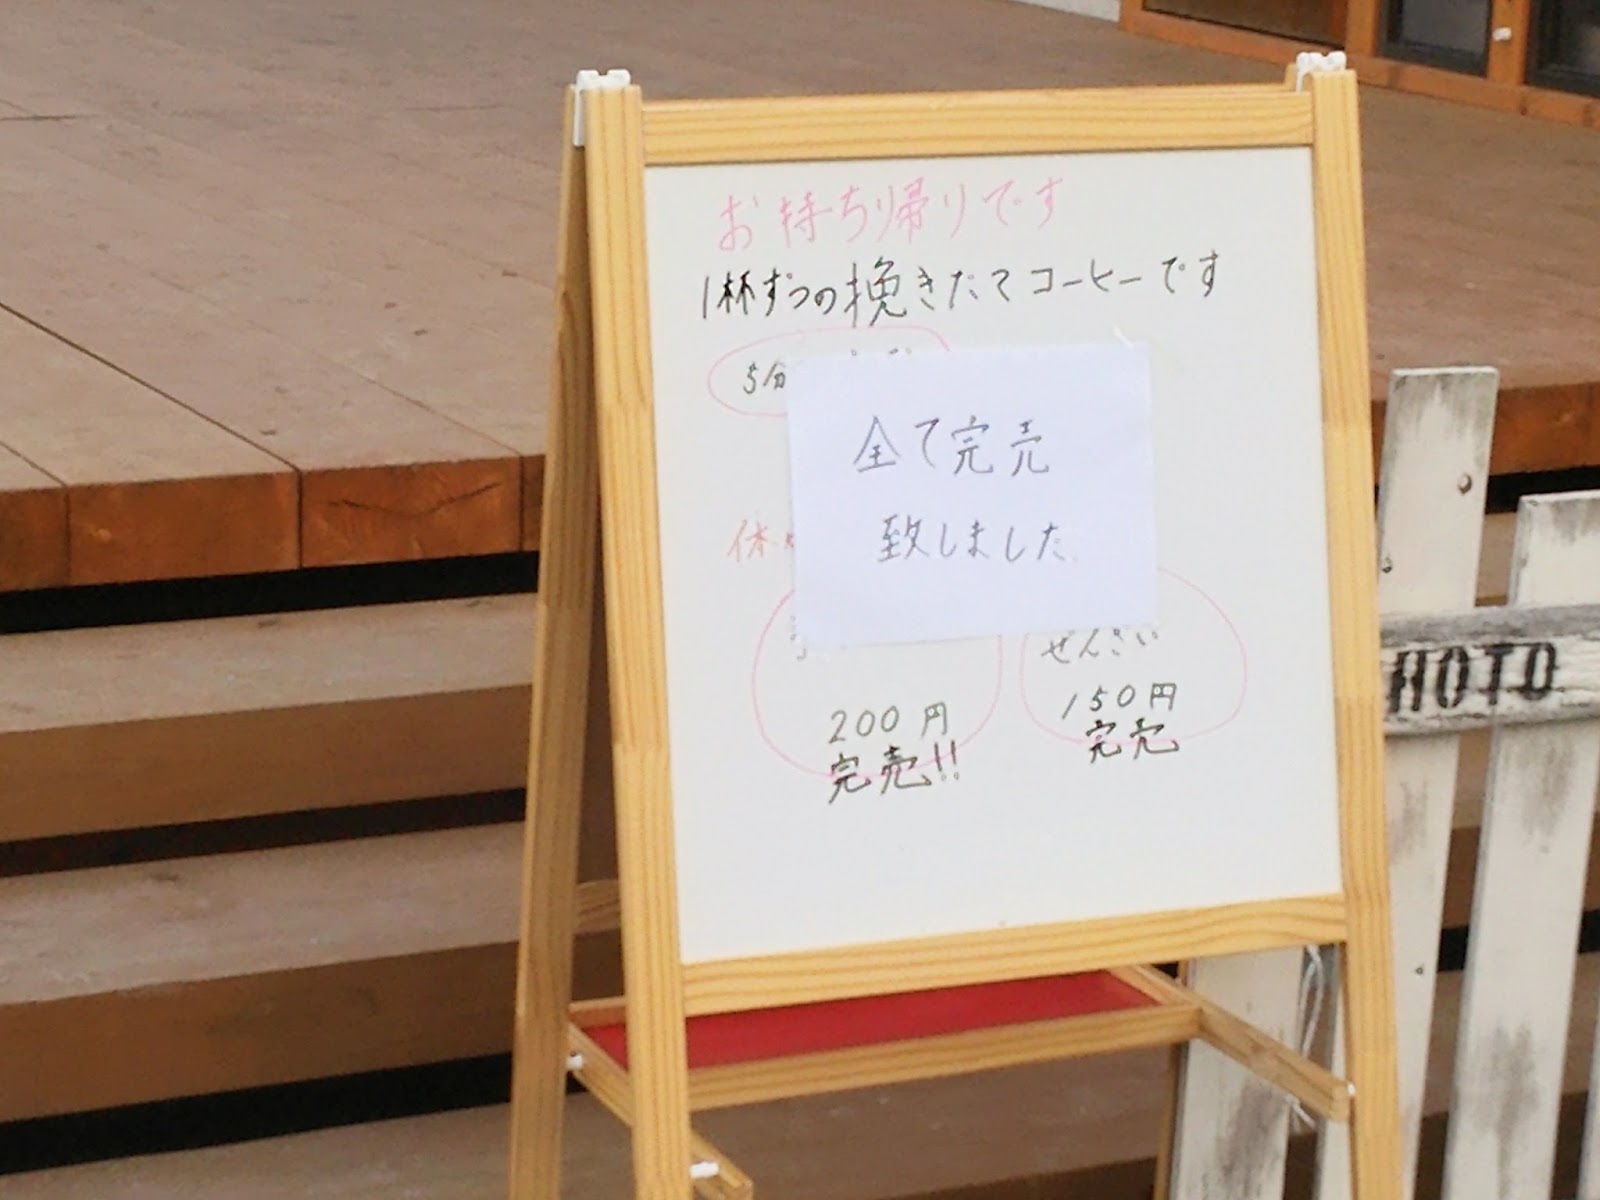 お持ち帰りです
1杯ずつの挽きたてコーヒーです
5分
全て完売
致しました
ぜんざい
200円
150円
完売!!
完売
HOTO